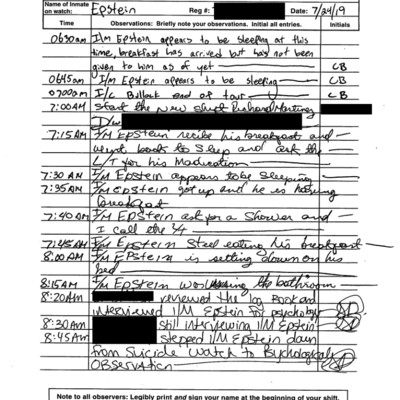 Name of Inmate on watch: Epstein Reg #: Date: 7/24/19
Time Observations: Briefly note your observations. Initial all entries. Initials
0630am I/m Epstein appears to be sleeping at this
time, breakfast has arrived but has not been
given to him as of yet CB
0645am I/m Epstein appears to be sleeping CB
0700am I/c Bullock end of tour CB
7:00AM Start the New shift Richard Martinez
7:15AM I/M Epstein recite his breakfast and
went back to sleep and ask the
L/T for his Madication
7:30 AM I/M Epstein appears to be sleeping
7:35AM I/M Epstein got up and he is having
breakfast
7:40AM I/M EPstein ask for a Shower and
I call the
7:45AM I/M Epstein Steel eating his breakfast
8:00AM I/M EPstein is setting down on his
bed
8:15AM I/M Epstein using the bathroom
8:20AM reviewed the log Book and
interviewed I/M Epstein for psychology
8:30AM still interviewing I/M Epstein
8:45AM stepped I/M Epstein down
from Suicide Watch to Psychological
OBservation
Note to all observers: Legibly print and sign your name at the beginning of your shift.